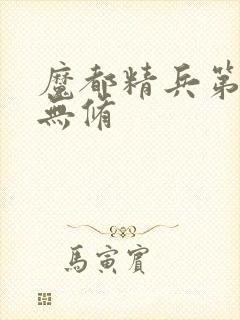 魔都精兵第
無脩
馬寅賓